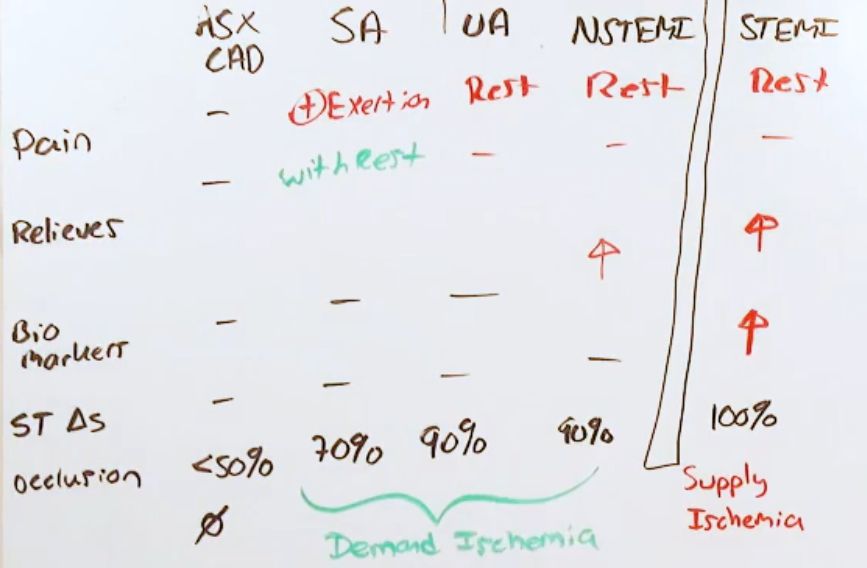 ASX CAD SA UA NSTEMI STEMI
Pain – ⊕Exertion Rest Rest Rest
Relieves – with Rest – – –
Bio markers – – – ↑ ↑
ST Δs – – – – ↑
occlusion <50% 70% 90% 90% 100%
Ø Demand Ischemia Supply Ischemia